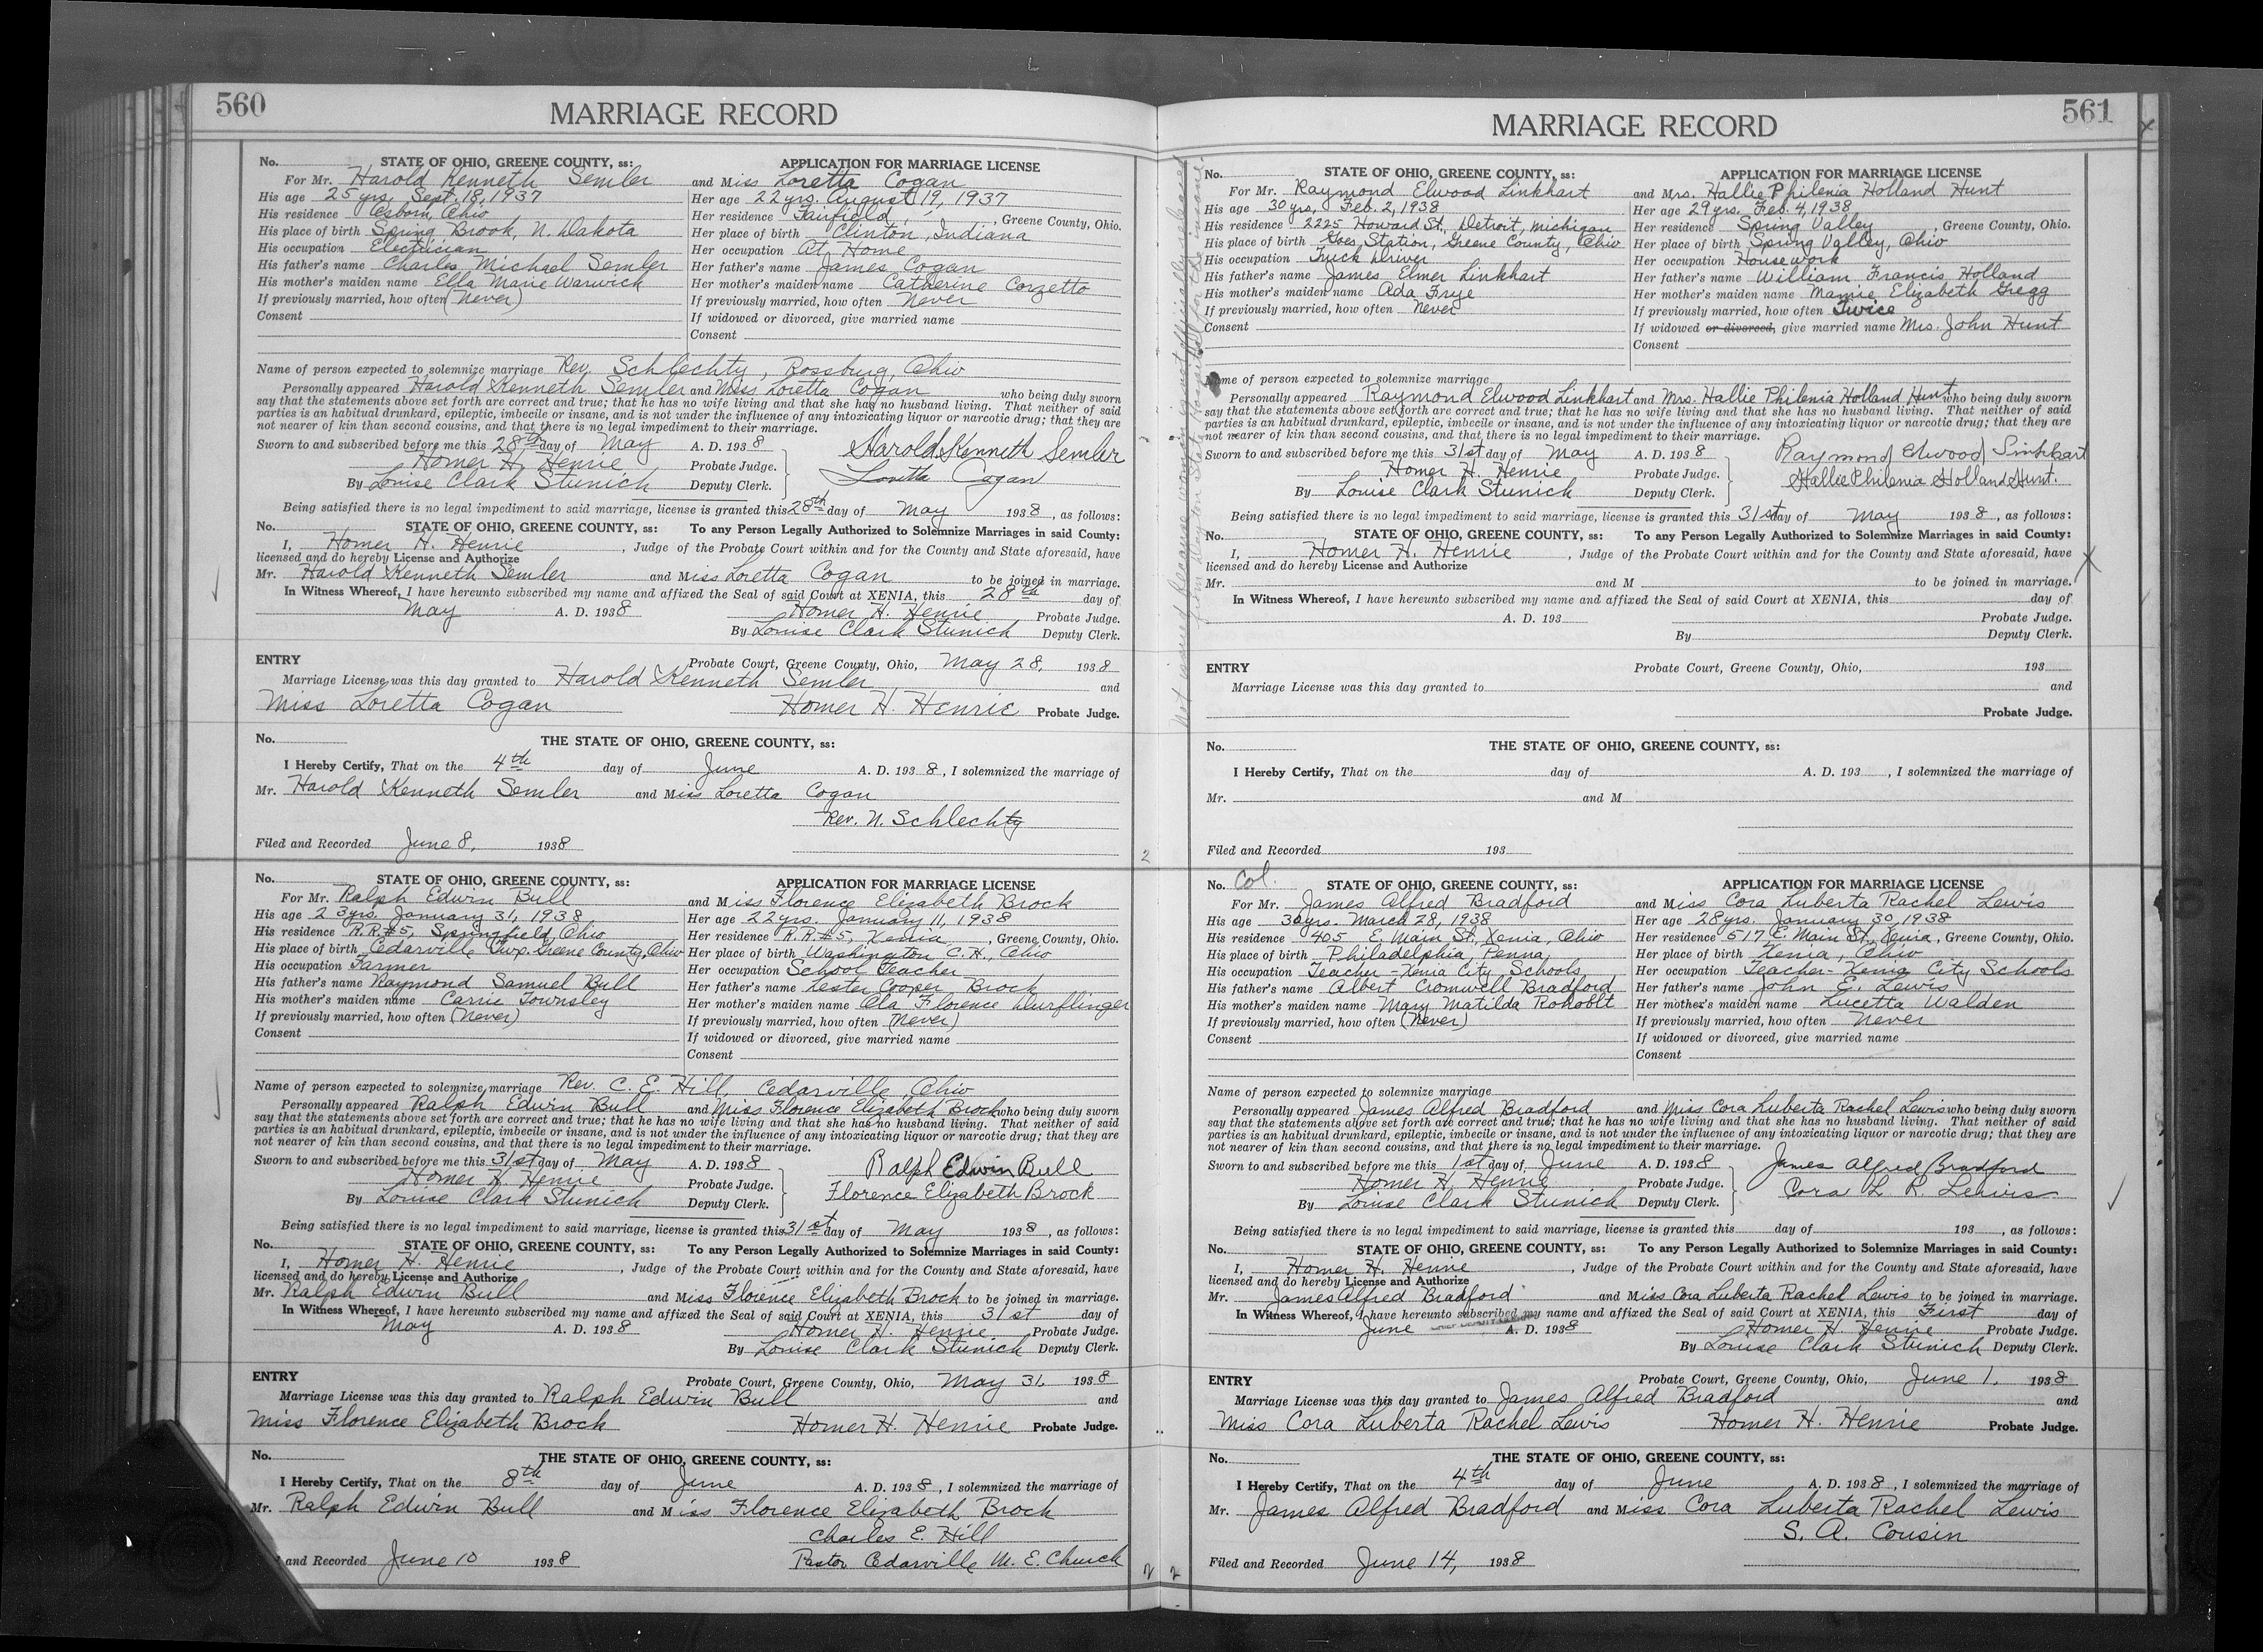 560
MARRIAGE RECORD
No. STATE OF OHIO, GREENE COUNTY, ss:
For Mr. Harold Kenneth Semler
His age 25 yrs. Sept. 18, 1937
His residence Osborn, Ohio
His place of birth Spring Brook, N. Dakota
His occupation Electrician
His father's name Charles Michael Semler
His mother's maiden name Ella Marie Warwick
If previously married, how often (Never)
Consent
APPLICATION FOR MARRIAGE LICENSE
and Miss Loretta Cogan
Her age 22 yrs. August 19, 1937
Her residence Fairfield, Greene County, Ohio.
Her place of birth Clinton, Indiana
Her occupation At Home
Her father's name James Cogan
Her mother's maiden name Catherine Corzetto
If previously married, how often Never
If widowed or divorced, give married name
Consent
Name of person expected to solemnize marriage Rev. Schlechty, Rossburg, Ohio
Personally appeared Harold Kenneth Semler and Miss Loretta Cogan who being duly sworn
say that the statements above set forth are correct and true; that he has no wife living and that she has no husband living. That neither of said
parties is an habitual drunkard, epileptic, imbecile or insane, and is not under the influence of any intoxicating liquor or narcotic drug; that they are
not nearer of kin than second cousins, and that there is no legal impediment to their marriage.
Sworn to and subscribed before me this 28th day of May A. D. 1938 Harold Kenneth Semler
Homer H. Henrie Probate Judge. Loretta Cogan
By Louise Clark Stunich Deputy Clerk.
Being satisfied there is no legal impediment to said marriage, license is granted this 28th day of May 1938, as follows:
No. STATE OF OHIO, GREENE COUNTY, ss: To any Person Legally Authorized to Solemnize Marriages in said County:
I, Homer H. Henrie, Judge of the Probate Court within and for the County and State aforesaid, have
licensed and do hereby License and Authorize
Mr. Harold Kenneth Semler and Miss Loretta Cogan to be joined in marriage.
In Witness Whereof, I have hereunto subscribed my name and affixed the Seal of said Court at XENIA, this 28th day of
May A. D. 1938 Homer H. Henrie Probate Judge.
By Louise Clark Stunich Deputy Clerk.
ENTRY Probate Court, Greene County, Ohio, May 28, 1938
Marriage License was this day granted to Harold Kenneth Semler and
Miss Loretta Cogan Homer H. Henrie Probate Judge.
No. THE STATE OF OHIO, GREENE COUNTY, ss:
I Hereby Certify, That on the 4th day of June A. D. 1938, I solemnized the marriage of
Mr. Harold Kenneth Semler and Miss Loretta Cogan
Rev. N. Schlechty
Filed and Recorded June 8, 1938
No. STATE OF OHIO, GREENE COUNTY, ss:
For Mr. Ralph Edwin Bull
His age 23 yrs. January 31, 1938
His residence R.R. #5, Springfield, Ohio
His place of birth Cedarville Twp. Greene County, Ohio
His occupation Farmer
His father's name Raymond Samuel Bull
His mother's maiden name Carrie Townsley
If previously married, how often (Never)
Consent
APPLICATION FOR MARRIAGE LICENSE
and Miss Florence Elizabeth Brock
Her age 22 yrs. January 11, 1938
Her residence R.R. #5, Xenia, Greene County, Ohio.
Her place of birth Washington C. H., Ohio
Her occupation School Teacher
Her father's name Lester Cooper Brock
Her mother's maiden name Ola Florence Durflinger
If previously married, how often (Never)
If widowed or divorced, give married name
Consent
Name of person expected to solemnize marriage Rev. C. E. Hill, Cedarville, Ohio
Personally appeared Ralph Edwin Bull and Miss Florence Elizabeth Brock who being duly sworn
say that the statements above set forth are correct and true; that he has no wife living and that she has no husband living. That neither of said
parties is an habitual drunkard, epileptic, imbecile or insane, and is not under the influence of any intoxicating liquor or narcotic drug; that they are
not nearer of kin than second cousins, and that there is no legal impediment to their marriage.
Sworn to and subscribed before me this 31st day of May A. D. 1938 Ralph Edwin Bull
Homer H. Henrie Probate Judge. Florence Elizabeth Brock
By Louise Clark Stunich Deputy Clerk.
Being satisfied there is no legal impediment to said marriage, license is granted this 31st day of May 1938, as follows:
No. STATE OF OHIO, GREENE COUNTY, ss: To any Person Legally Authorized to Solemnize Marriages in said County:
I, Homer H. Henrie, Judge of the Probate Court within and for the County and State aforesaid, have
licensed and do hereby License and Authorize
Mr. Ralph Edwin Bull and Miss Florence Elizabeth Brock to be joined in marriage.
In Witness Whereof, I have hereunto subscribed my name and affixed the Seal of said Court at XENIA, this 31st day of
May A. D. 1938 Homer H. Henrie Probate Judge.
By Louise Clark Stunich Deputy Clerk.
ENTRY Probate Court, Greene County, Ohio, May 31, 1938
Marriage License was this day granted to Ralph Edwin Bull and
Miss Florence Elizabeth Brock Homer H. Henrie Probate Judge.
No. THE STATE OF OHIO, GREENE COUNTY, ss:
I Hereby Certify, That on the 8th day of June A. D. 1938, I solemnized the marriage of
Mr. Ralph Edwin Bull and Miss Florence Elizabeth Brock
Charles E. Hill
and Recorded June 10 1938 Pastor Cedarville M. E. Church
2
2 2
561
MARRIAGE RECORD
No. STATE OF OHIO, GREENE COUNTY, ss:
For Mr. Raymond Elwood Linkhart
His age 30 yrs, Feb. 2, 1938
His residence 2225 Howard St., Detroit, Michigan
His place of birth Goes Station, Greene County, Ohio
His occupation Truck Driver
His father's name James Elmer Linkhart
His mother's maiden name Ada Frye
If previously married, how often Never
Consent
APPLICATION FOR MARRIAGE LICENSE
and Mrs. Hallie Philenia Holland Hunt
Her age 29 yrs. Feb. 4, 1938
Her residence Spring Valley, Greene County, Ohio.
Her place of birth Spring Valley, Ohio
Her occupation Housework
Her father's name William Francis Holland
Her mother's maiden name Mamie Elizabeth Gregg
If previously married, how often Twice
If widowed or divorced, give married name Mrs. John Hunt
Consent
Name of person expected to solemnize marriage
Personally appeared Raymond Elwood Linkhart and Mrs. Hallie Philenia Holland Hunt who being duly sworn
say that the statements above set forth are correct and true; that he has no wife living and that she has no husband living. That neither of said
parties is an habitual drunkard, epileptic, imbecile or insane, and is not under the influence of any intoxicating liquor or narcotic drug; that they are
not nearer of kin than second cousins, and that there is no legal impediment to their marriage.
Sworn to and subscribed before me this 31st day of May A. D. 1938 Raymond Elwood Linkhart
Homer H. Henrie Probate Judge. Hallie Philenia Holland Hunt.
By Louise Clark Stunich Deputy Clerk.
Being satisfied there is no legal impediment to said marriage, license is granted this 31st day of May 1938, as follows:
No. STATE OF OHIO, GREENE COUNTY, ss: To any Person Legally Authorized to Solemnize Marriages in said County:
I, Homer H. Henrie, Judge of the Probate Court within and for the County and State aforesaid, have
licensed and do hereby License and Authorize
Mr. and M to be joined in marriage.
In Witness Whereof, I have hereunto subscribed my name and affixed the Seal of said Court at XENIA, this day of
A. D. 193 Probate Judge.
By Deputy Clerk.
ENTRY Probate Court, Greene County, Ohio, 193
Marriage License was this day granted to and
Probate Judge.
No. THE STATE OF OHIO, GREENE COUNTY, ss:
I Hereby Certify, That on the day of A. D. 193 , I solemnized the marriage of
Mr. and M
Filed and Recorded 193
No. Col. STATE OF OHIO, GREENE COUNTY, ss:
For Mr. James Alfred Bradford
His age 30 yrs. March 28, 1938
His residence 405 E. Main St., Xenia, Ohio
His place of birth Philadelphia, Penna,
His occupation Teacher - Xenia City Schools
His father's name Albert Cromwell Bradford
His mother's maiden name Mary Matilda
If previously married, how often (Never)
Consent
APPLICATION FOR MARRIAGE LICENSE
and Miss Cora Luberta Rachel Lewis
Her age 28 yrs. January 30, 1938
Her residence 517 E. Main St., Xenia, Greene County, Ohio.
Her place of birth Xenia, Ohio
Her occupation Teacher - Xenia City Schools
Her father's name John E. Lewis
Her mother's maiden name Lucetta Walden
If previously married, how often Never
If widowed or divorced, give married name
Consent
Name of person expected to solemnize marriage
Personally appeared James Alfred Bradford and Miss Cora Luberta Rachel Lewis who being duly sworn
say that the statements above set forth are correct and true; that he has no wife living and that she has no husband living. That neither of said
parties is an habitual drunkard, epileptic, imbecile or insane, and is not under the influence of any intoxicating liquor or narcotic drug; that they are
not nearer of kin than second cousins, and that there is no legal impediment to their marriage.
Sworn to and subscribed before me this 1st day of June A. D. 1938 James Alfred Bradford
Homer H. Henrie Probate Judge. Cora L. R. Lewis
By Louise Clark Stunich Deputy Clerk.
Being satisfied there is no legal impediment to said marriage, license is granted this day of 193 , as follows:
No. STATE OF OHIO, GREENE COUNTY, ss: To any Person Legally Authorized to Solemnize Marriages in said County:
I, Homer H. Henrie, Judge of the Probate Court within and for the County and State aforesaid, have
licensed and do hereby License and Authorize
Mr. James Alfred Bradford and Miss Cora Luberta Rachel Lewis to be joined in marriage.
In Witness Whereof, I have hereunto subscribed my name and affixed the Seal of said Court at XENIA, this First day of
June A. D. 1938 Homer H. Henrie Probate Judge.
By Louise Clark Stunich Deputy Clerk.
ENTRY Probate Court, Greene County, Ohio, June 1, 1938
Marriage License was this day granted to James Alfred Bradford and
Miss Cora Luberta Rachel Lewis Homer H. Henrie Probate Judge.
No. THE STATE OF OHIO, GREENE COUNTY, ss:
I Hereby Certify, That on the 4th day of June A. D. 1938, I solemnized the marriage of
Mr. James Alfred Bradford and Miss Cora Luberta Rachel Lewis
S. A. Cousin
Filed and Recorded June 14, 1938